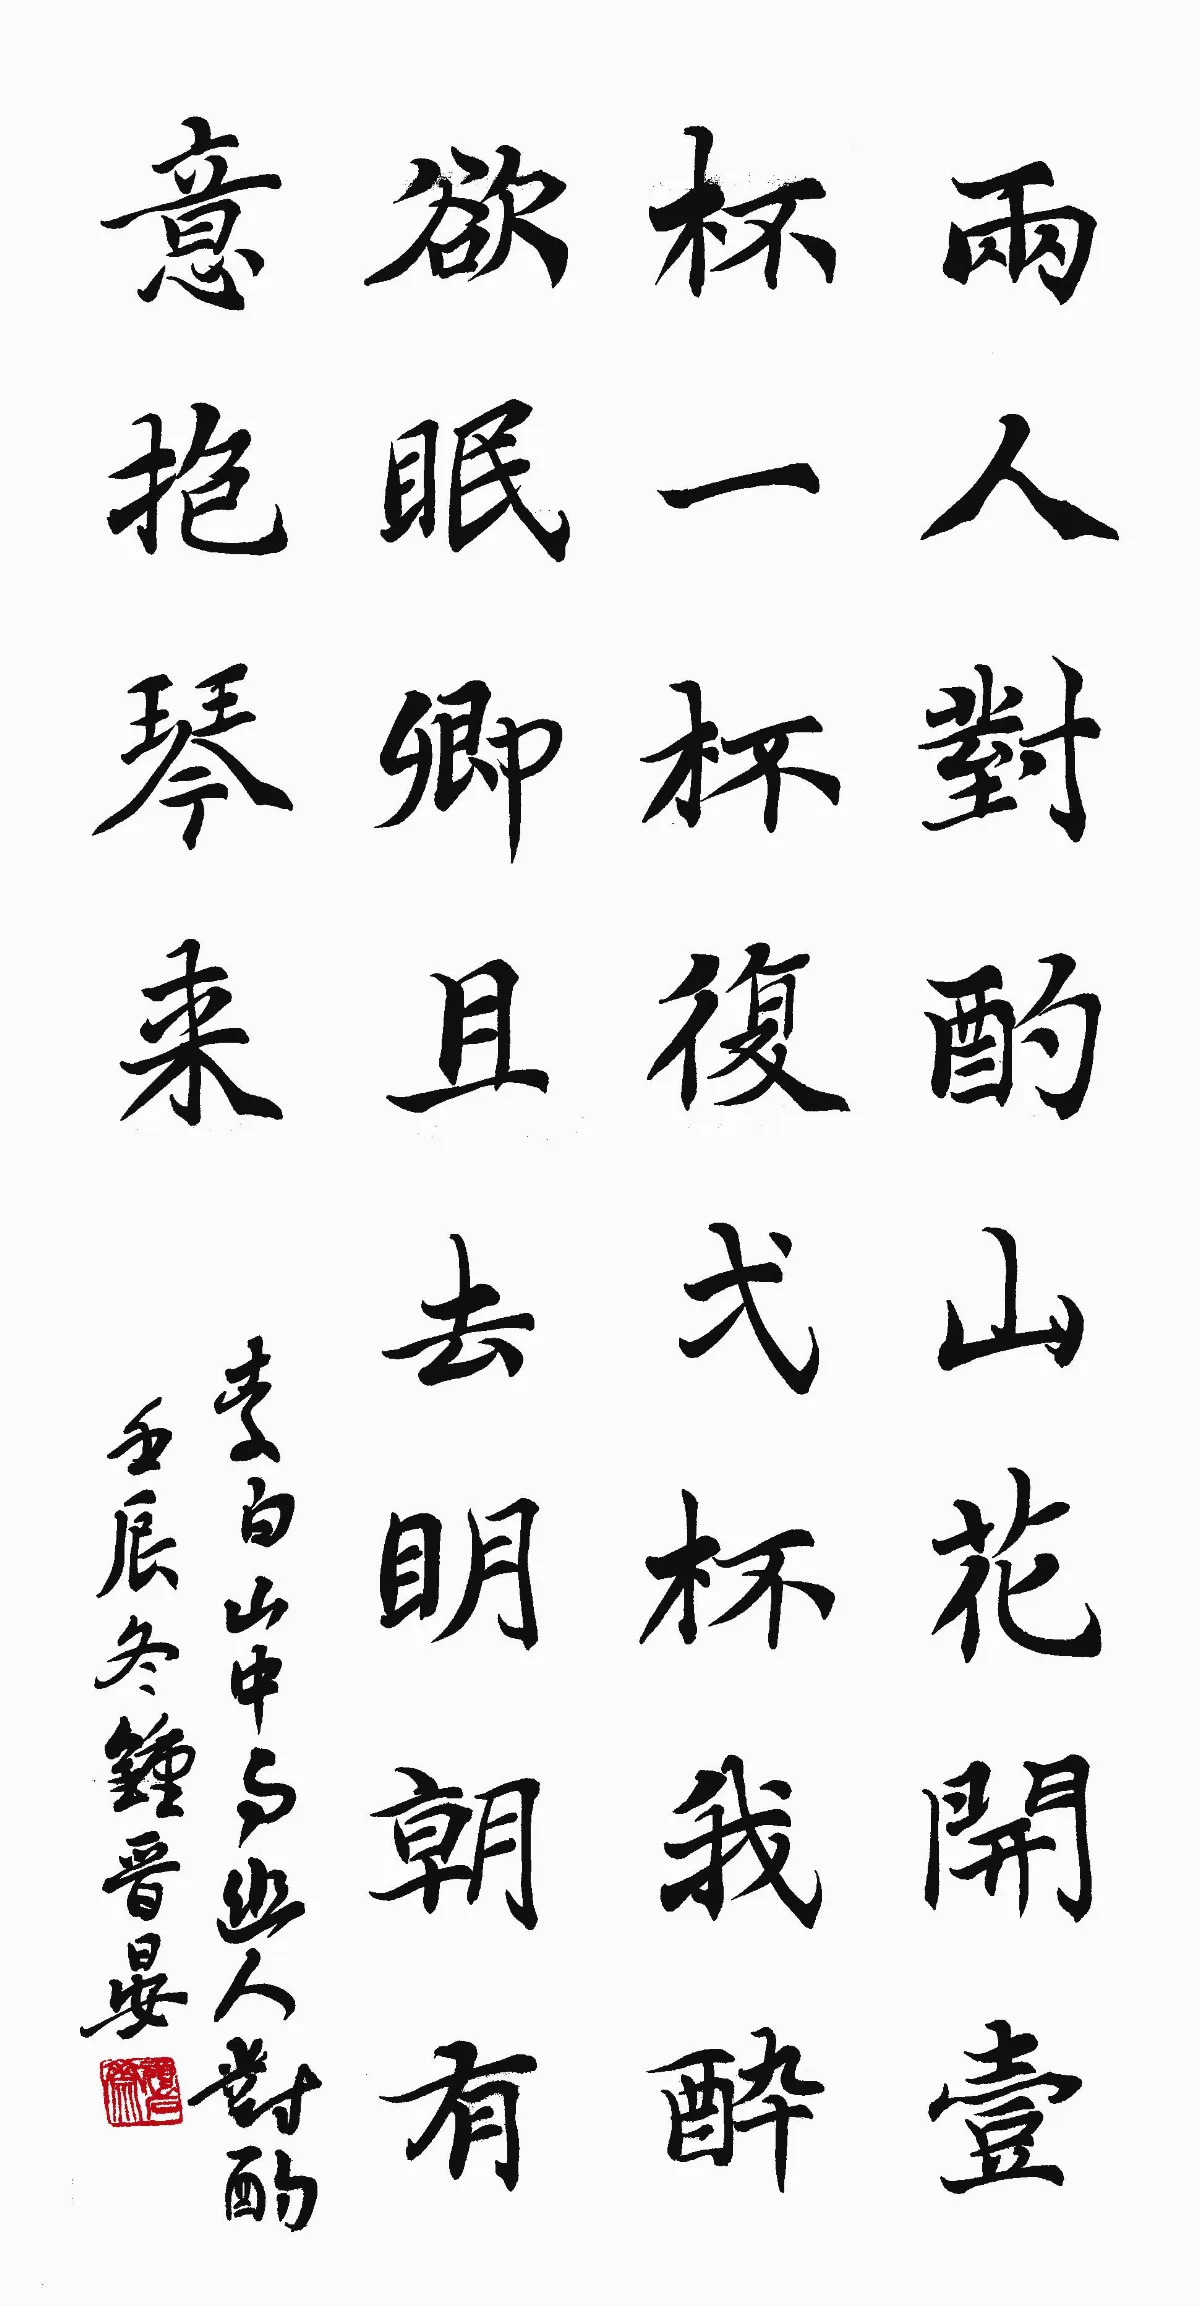 兩人對酌山花開壹
杯一杯復弌杯我醉
欲眠卿且去明朝有
意抱琴来
李白山中与幽人對酌
壬辰冬鍾晋晏